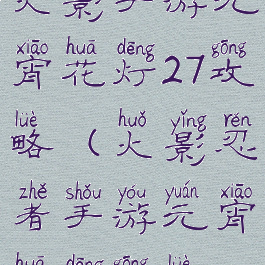 火影手游元
xiāo huā dēng gōng
宵花灯27攻
lüè huǒ yǐng rén
略（火影忍
zhě shǒu yóu yuán xiāo
者手游元宵
huā dēng gōng lüè